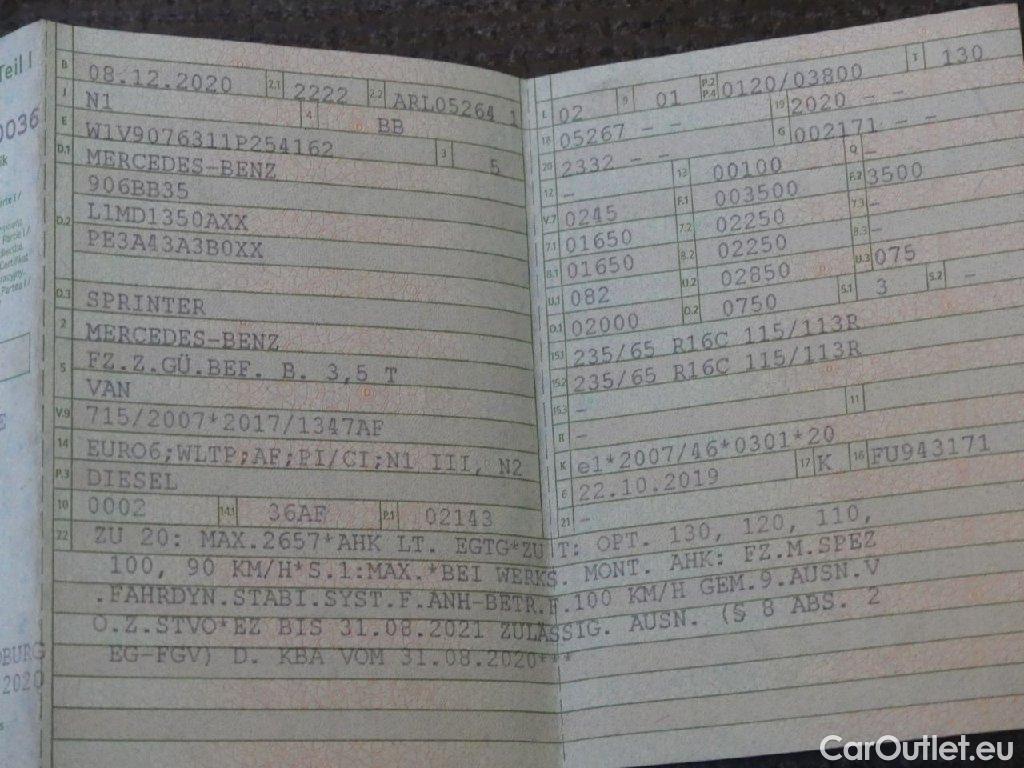 Teil I
B 08.12.2020 2.1 2222 2.2 ARL05264 1
J N1 4 BB
E W1V9076311P254162 3 5
D.1 MERCEDES-BENZ
906BB35
D.2 L1MD1350AXX
PE3A43A3B0XX
D.3 SPRINTER
2 MERCEDES-BENZ
5 FZ.Z.GÜ.BEF. B. 3,5 T
VAN
V.9 715/2007*2017/1347AF
14 EURO6;WLTP;AF;PI/CI;N1 III, N2
P.3 DIESEL
10 0002 14.1 36AF P.1 02143
L 02 9 01 P.2 P.4 0120/03800 T 130
18 05267 - - 19 2020 - -
20 2332 - - G 002171 - -
12 - 13 00100 Q -
V.7 0245 F.1 003500 F.2 3500
7.1 01650 7.2 02250 7.3 -
8.1 01650 8.2 02250 8.3 -
U.1 082 U.2 02850 U.3 075
O.1 02000 O.2 0750 S.1 3 S.2 -
15.1 235/65 R16C 115/113R
15.2 235/65 R16C 115/113R
15.3 -
R - 11
K e1*2007/46*0301*20
6 22.10.2019 17 K 16 FU943171
21 -
22 ZU 20: MAX.2657*AHK LT. EGTG*ZU T: OPT. 130, 120, 110,
100, 90 KM/H*S.1:MAX.*BEI WERKS. MONT. AHK: FZ.M.SPEZ
.FAHRDYN.STABI.SYST.F.ANH-BETR.F.100 KM/H GEM.9.AUSN.V
O.Z.STVO*EZ BIS 31.08.2021 ZULÄSSIG. AUSN. (§ 8 ABS. 2
EG-FGV) D. KBA VOM 31.08.2020***
0036
BURG
2020
CarOutlet.eu